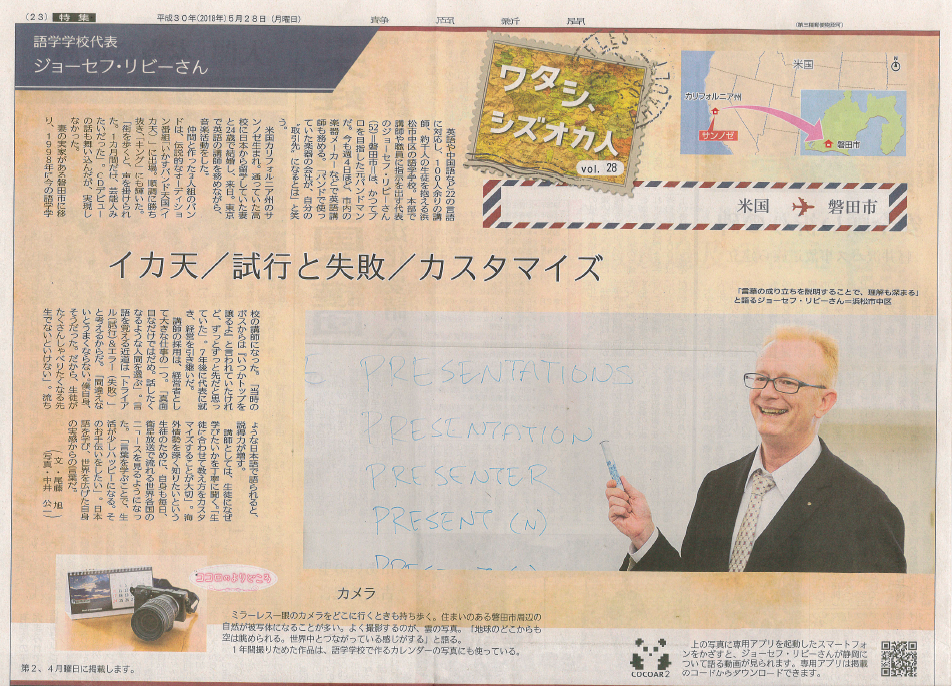 (23) 特集
平成30年(2018年)5月28日(月曜日)
静岡新聞
(第三種郵便物認可)
語学学校代表
ジョーセフ・リビーさん
ワタシ、
シズオカ人
vol. 28
米国
N
カリフォルニア州
サンノゼ
磐田市
米国 磐田市
英語や中国語など22の言語
に対応し、100人余りの講
師、約千人の生徒を抱える浜
松市中区の語学学校。本部で
講師や職員に指示を出す代表
のジョーセフ・リビーさん
(52)=磐田市=は、かつてプ
ロを目指した元バンドマン
だ。今も週4日ほど、市内の
楽器メーカーなどで英語講
師も務める。「バンドで使っ
ていた楽器の会社が、自分の
“取引先”になるとは」と笑
う。
米国カリフォルニア州のサ
ンノゼ生まれ。通っていた高
校に日本から留学していた妻
と24歳で結婚し、来日。東京
で英語の講師を務めながら、
音楽活動をした。
仲間と作った4人組のバン
ドは、伝説的なオーディショ
ン番組「いかすバンド天国(イ
カ天)」に出場。順調に勝ち
抜き、「キング」にも輝いた。
「街を歩くと、声を掛けられ
た。1カ月間だけ、芸能人み
たいだった」。CDデビュー
の話も舞い込んだが、実現し
なかった。
妻の実家がある磐田市に移
り、1998年に今の語学学
イカ天/試行と失敗/カスタマイズ
校の講師になった。「当時の
ボスからは『いつかトップを
譲るよ』と言われていたけれ
ど、ずっとずっと先だと思っ
ていた」。7年後に代表に就
き、経営を引き継いだ。
講師の採用は、経営者とし
て大きな仕事の一つ。「真面
目なだけではだめ。話したく
なるような人間を選ぶ」。言
語を覚える近道は「トライア
ル(試行)&エラー(失敗)」
と考えるからだ。「間違えな
いとうまくならない。僕自身、
そうだった。だから、生徒が
たくさんしゃべりたくなる先
生でないといけない」。流ち
ょうな日本語で語られると、
説得力が増す。
講師としては、生徒になぜ
学びたいかを丁寧に聞く。「生
徒に合わせて教え方をカスタ
マイズすることが大切」。海
外情勢を深く知りたいという
生徒のために、自身も毎日、
衛星放送で流れる世界各国の
ニュースを見るようになっ
た。「言葉を学ぶことで、生
活が少しハッピーになる。そ
のお手伝いをしたい」。日本
語を学び、世界を広げた自身
の実感からの言葉だ。
(文・尾藤 旭)
(写真・中井 公二)
「言葉の成り立ちを説明することで、理解も深まる」
と語るジョーセフ・リビーさん=浜松市中区
PRESENTATIONS
PRESENTATION
PRESENTER
PRESENT (N)
ココロのよりどころ
カメラ
ミラーレス一眼のカメラをどこに行くときも持ち歩く。住まいのある磐田市周辺の
自然が被写体になることが多い。よく撮影するのが、雲の写真。「地球のどこからも
空は眺められる。世界中とつながっている感じがする」と語る。
1年間撮りためた作品は、語学学校で作るカレンダーの写真にも使っている。
第2、4月曜日に掲載します。
COCOAR2
上の写真に専用アプリを起動したスマートフォ
ンをかざすと、ジョーセフ・リビーさんが静岡に
ついて語る動画が見られます。専用アプリは掲載
のコードからダウンロードできます。